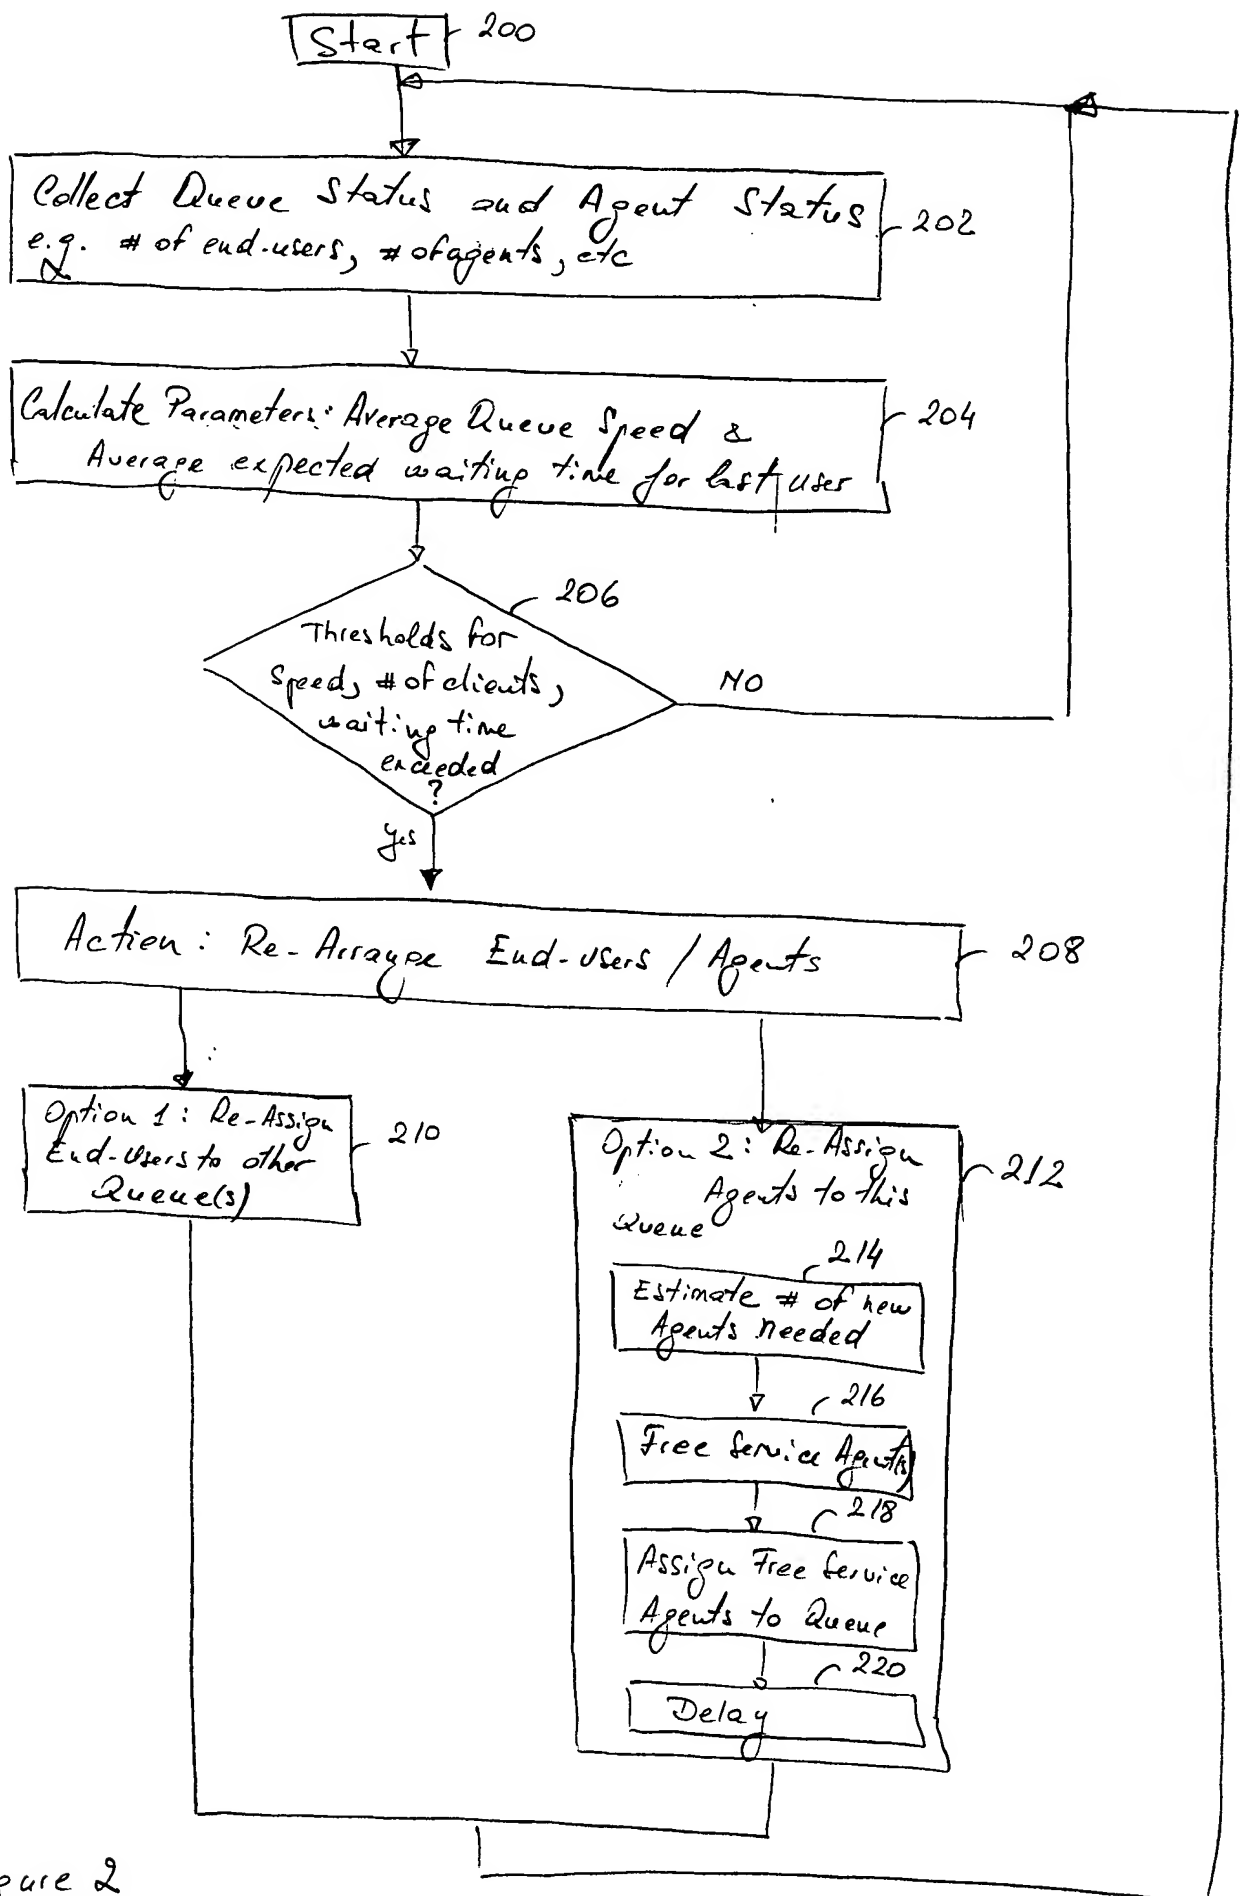 Start
200
Collect Queue Status and Agent Status
e.g. # of end-users, # of agents, etc
202
Calculate Parameters: Average Queue Speed &
Average expected waiting time for last user
204
206
Thresholds for
Speed, # of clients,
waiting time
exceeded
?
NO
yes
Action: Re-Arrange End-users / Agents
208
Option 1: Re-Assign
End-Users to other
Queue(s)
210
Option 2: Re-Assign
Agents to this
Queue
212
214
Estimate # of new
Agents needed
216
Free Service Agent(s)
218
Assign Free Service
Agents to Queue
220
Delay
gure 2